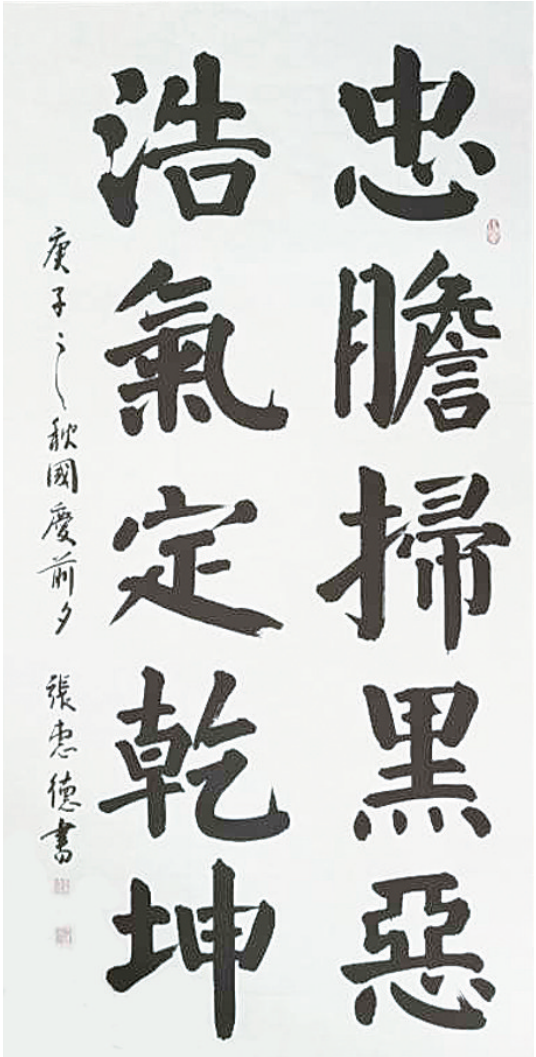 忠膽掃黑惡
浩氣定乾坤
庚子之秋國慶前夕 張惠德書